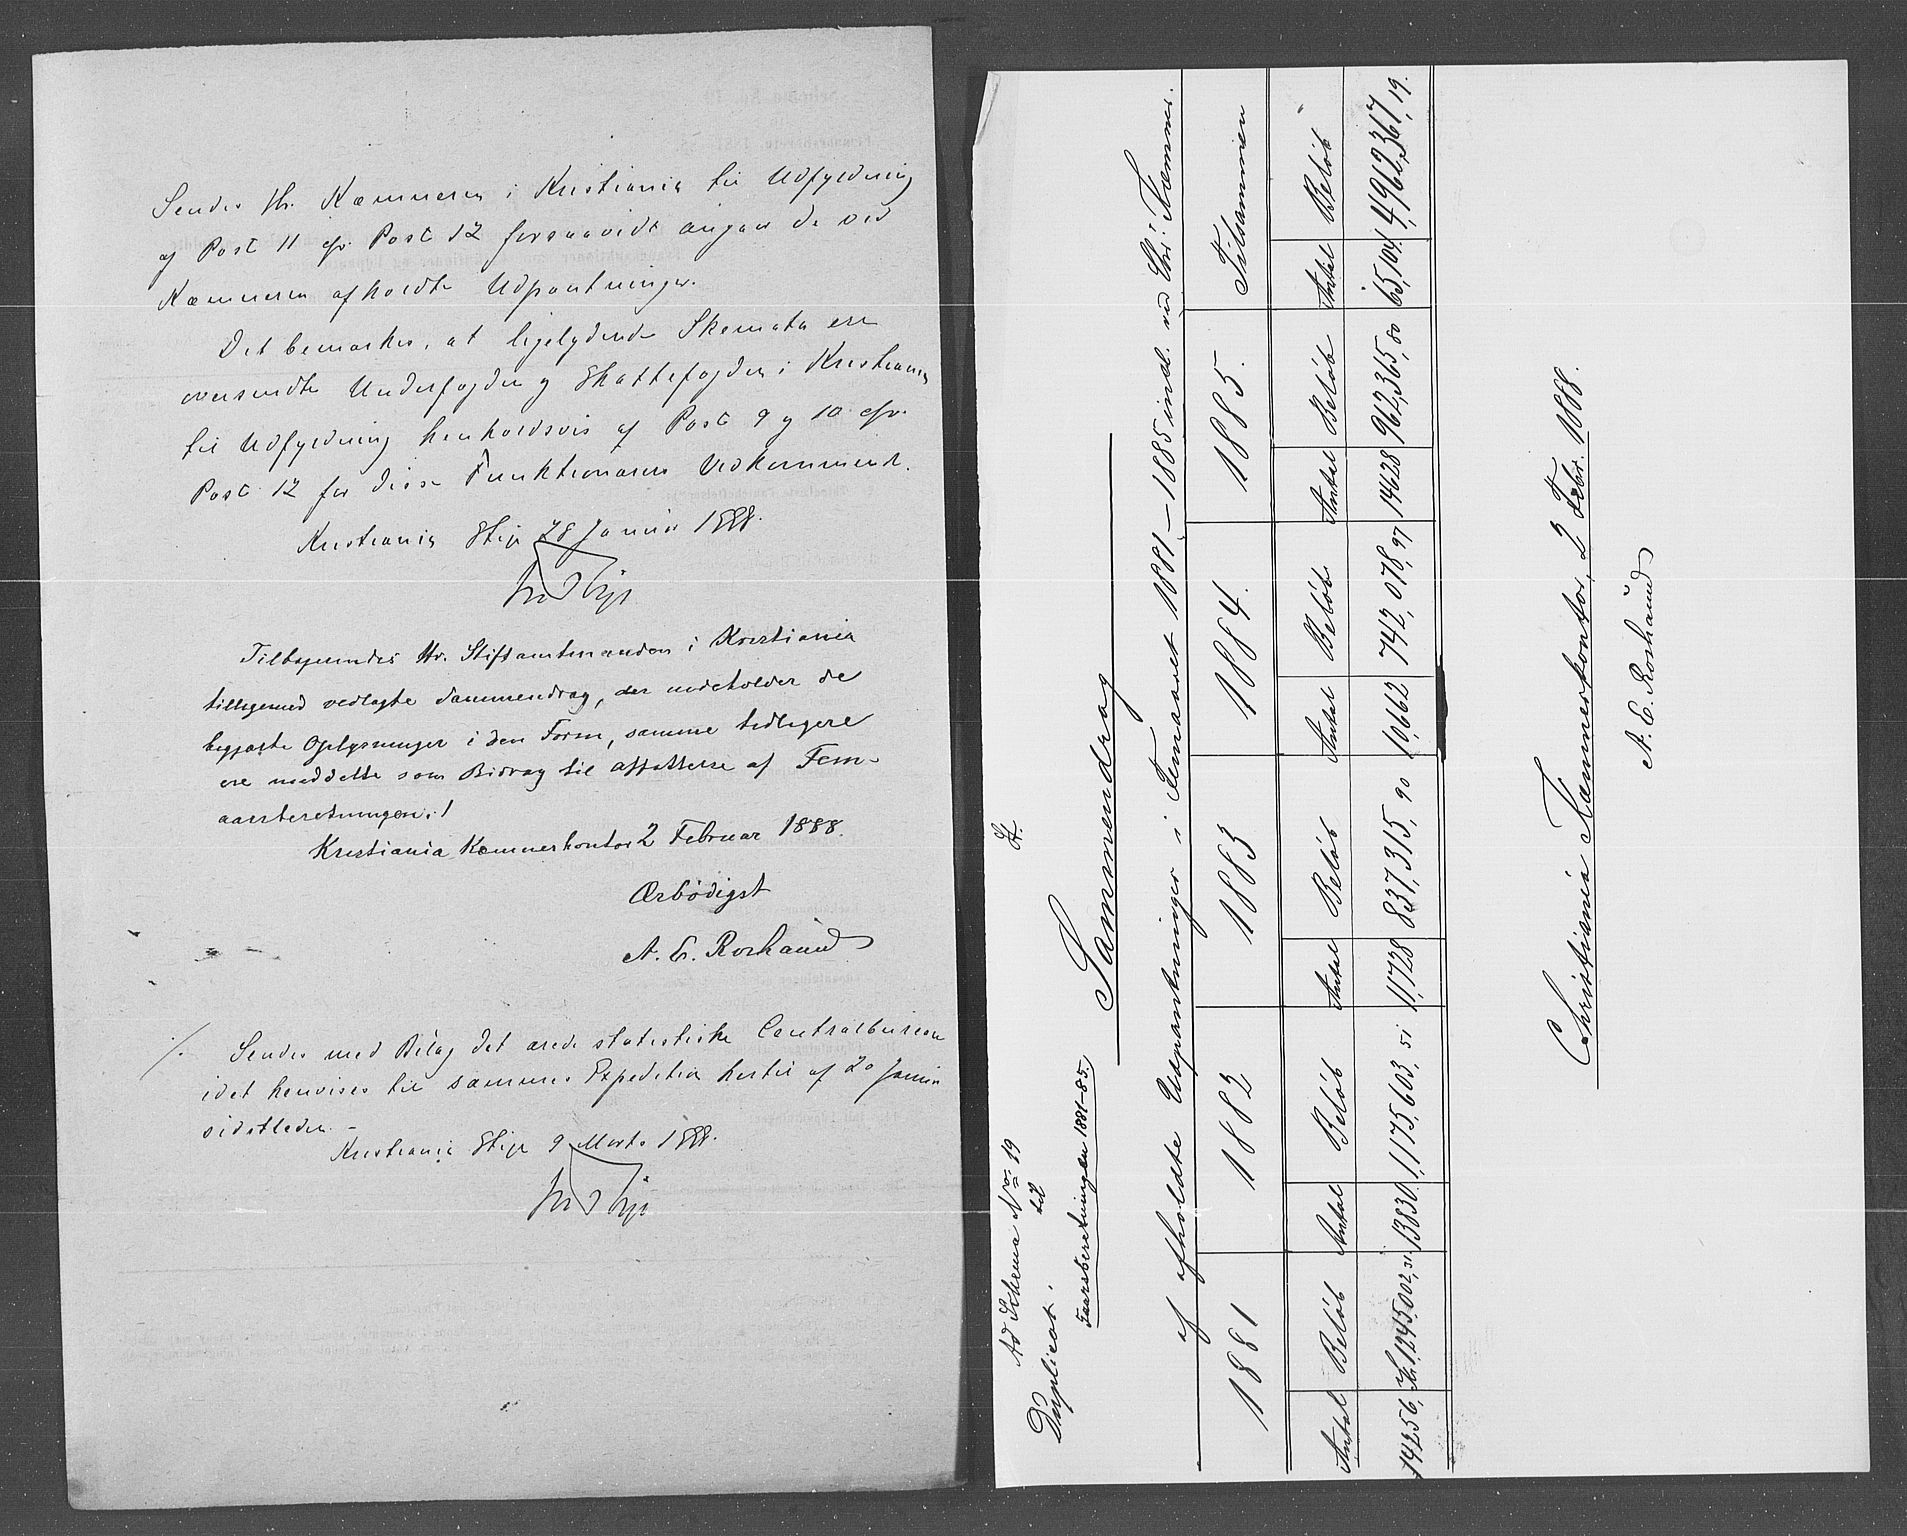 Sendes Hr. Kæmneren i Kristiania til Udfyldning
af Post 11 cfr. Post 12 forsaavidt angaar de ved
Kæmneren afholdte Udpantninger.
Det bemærkes, at ligelydende Skemata ere
oversendte Underfogden og Skattefogden i Kristiania
til Udfyldning henholdsvis af Post 9 og 10 cfr.
Post 12 for disse Funktionærers Vedkommende.
Kristiania Stip 28 Januar 1888.
Tilbagesendes Hr. Stiftamtmanden i Kristiania
tilligemed vedlagte Sammendrag, der indeholder de
begjærte Oplysninger i den Form, samme tidligere
ere meddelte som Bidrag til Affattelse af Fem-
aarsberetningen.
Kristiania Kæmnerkontor 2 Februar 1888.
Ærbødigst
A. E. Roshauw
./. Sendes med Bilag det ærede statistiske Centralbureau
idet henvises til sammes Expedition hertil af 20 Januar
sidstleden.
Kristiania Stip 9 Marts 1888.
Ad Schema No. 19
til
Duplicat.
Faarsberetningen 1881-85.
Sammendrag
af afholdte Udpantninger i Femaaret 1881 - 1885 incl. ved Chr: Kæmner.
1881 1882 1883 1884. 1885. Tilsammen
Antal Beløb Antal Beløb Antal Beløb Antal Beløb Antal Beløb Antal Beløb
14256, Kr. 1,245,002,31 13830, 1,175,603, 51 11,728 837,315, 90 10,662 742,078, 97 14628 962,365, 80 65,104 4,962,367, 19.
Christiania Kæmnerkontor, 2 Febr. 1888.
A. E. Roshauw